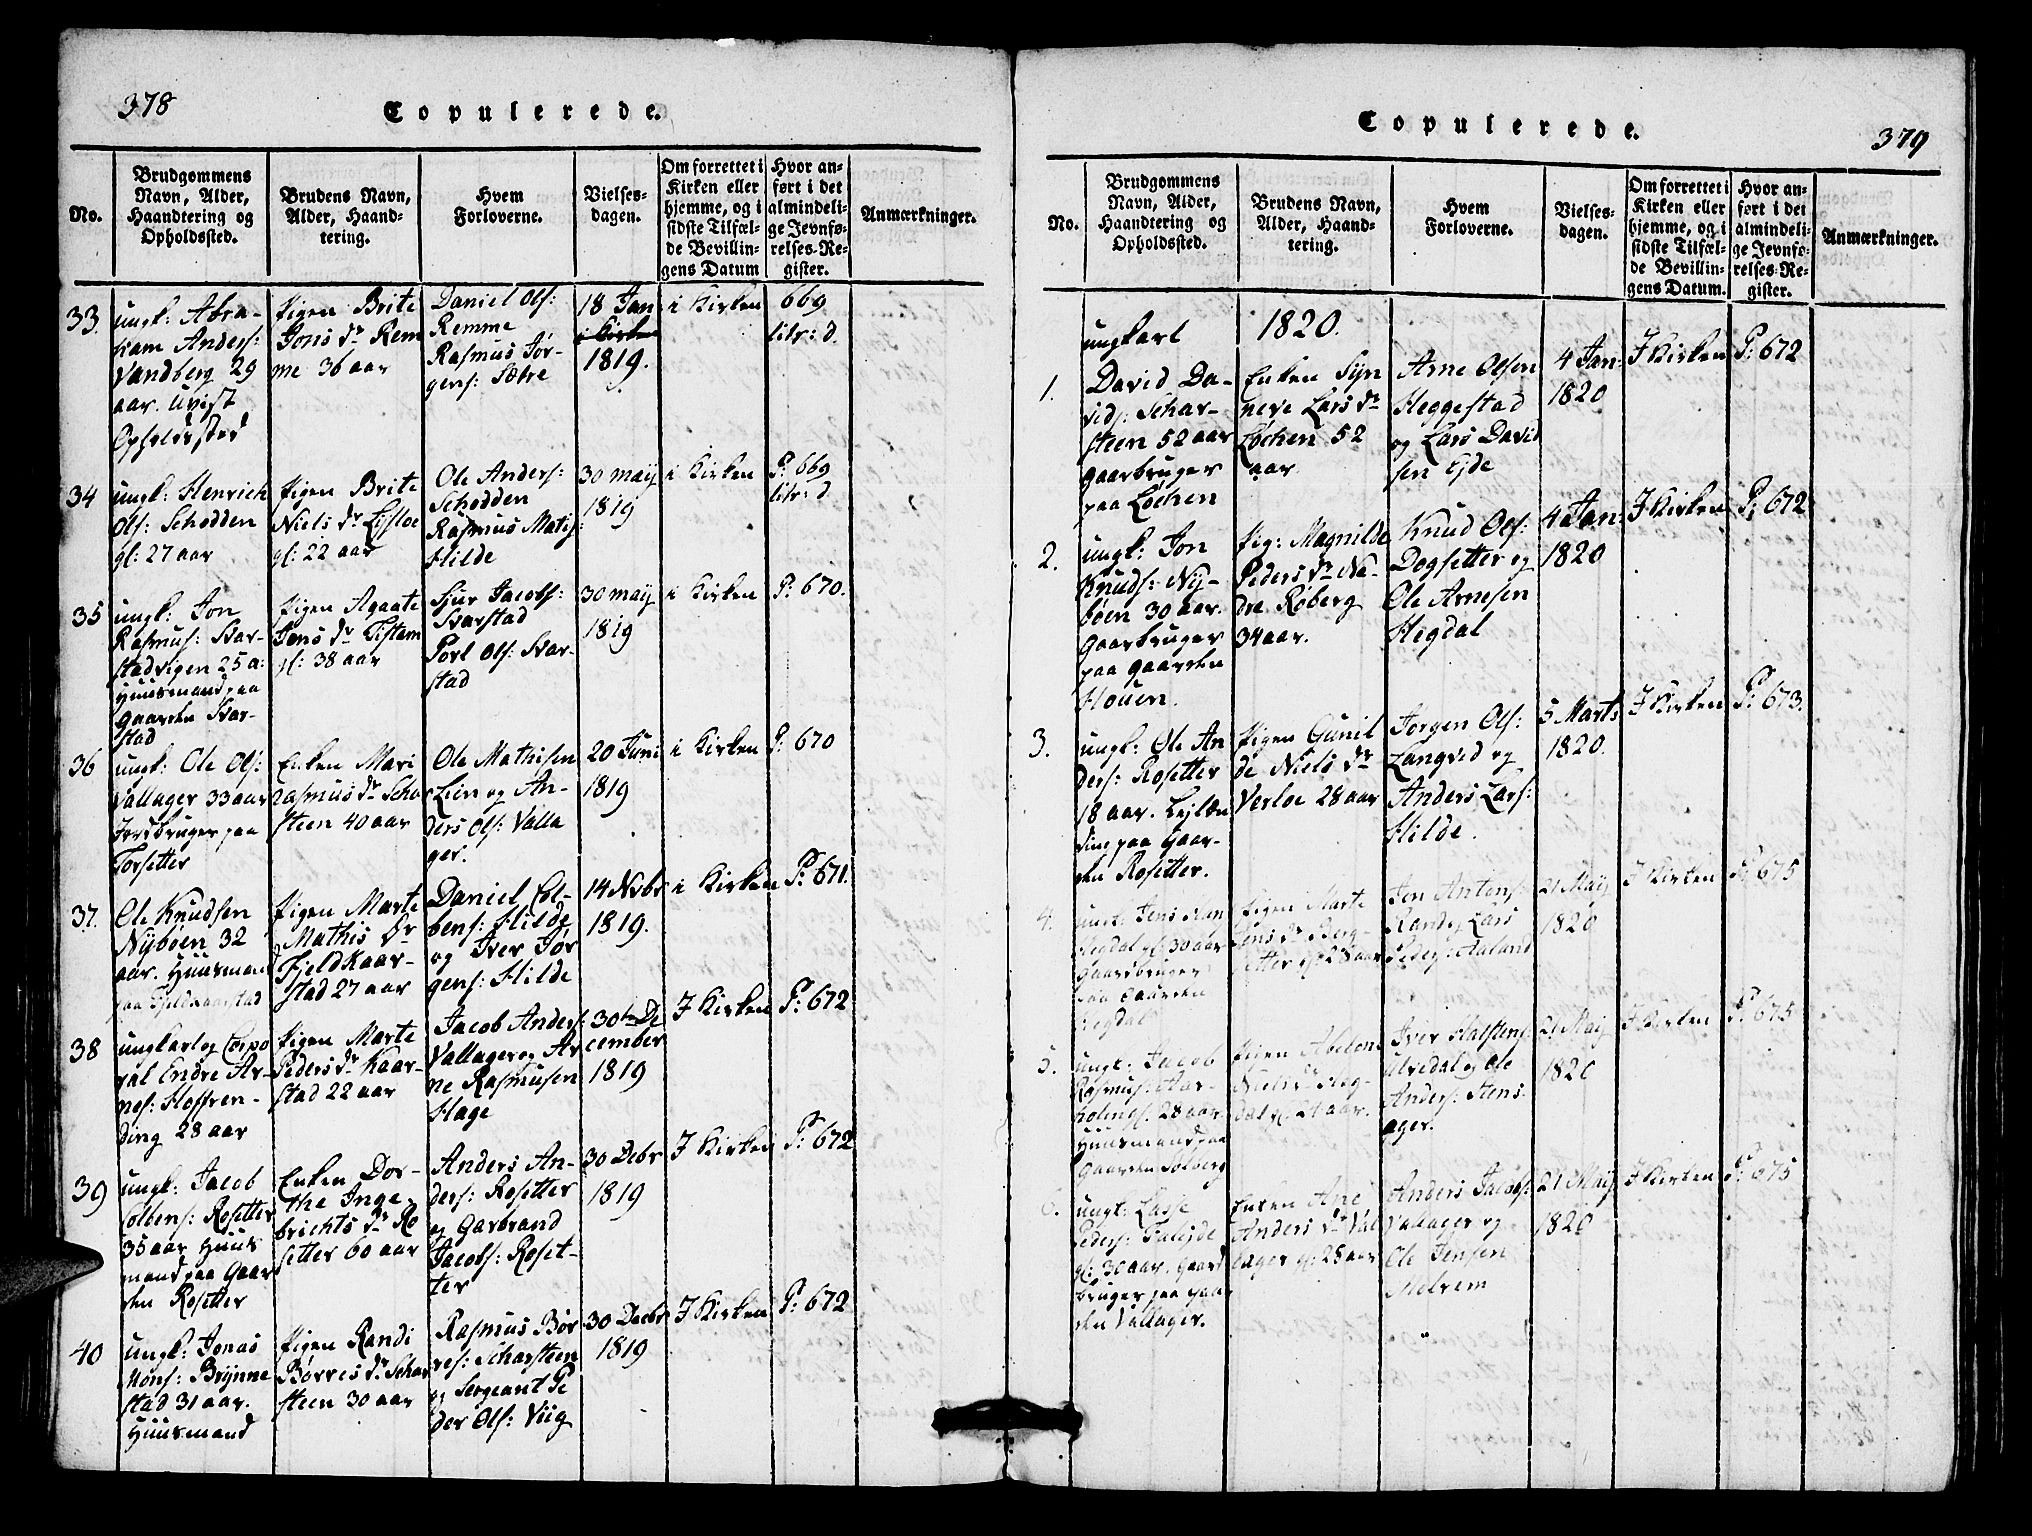 378
Copulerede.
No.
Brudgommens
Navn, Alder,
Haandtering og
Opholdssted.
Brudens Navn,
Alder, Haand-
tering.
Hvem
Forloverne.
Vielses-
dagen.
Om forrettet i
Kirken eller
hjemme, og i
sidste Tilfæl-
de Bevillin-
gens Datum
Hvor an-
ført i det
almindeli-
ge Jevnfø-
relses-Re-
gister.
Anmærkninger.
33.
ungk: Abra-
ham Anders:
Vandberg 29
aar. Uvist
Opholdssted
Pigen Brite
Jons dr Rem
me 36 aar
Daniel Ols:
Remme
Rasmus Jør-
gens: Sætre
18 Jan
i Kirk
1819.
i Kirken
669
litr: d.
34
ungk: Henrich
Ols: Schodden
gl: 27 aar
Pigen Brite
Niels dr Lisloe
gl: 22 aar
Ole Anders:
Schodden
Rasmus Matis:
Hilde
30 maij
1819
i Kirken
P: 669
litr: d
35
ungk: Jon
Rasmus: Svar-
stadvigen 25 a:
Huusmand paa
Gaarden Svar-
stad
Pigen Agaate
Jens dr Tistam
gl: 38 aar
Sjur Jacobs:
Svarstad
Poul Ols: Svar-
stad
30 maij
1819
i Kirken
P: 670.
36
ungk: Ole Ols:
Vallager 33 aar
Jordbruger paa
Torsetter
Enken Mari
Rasmus dr Scha
steen 40 aar
Ole Mathisen
Lien og An-
ders Ols: Valla
ger.
20 Juni
1819
i Kirken
P: 670
37.
Ole Knudsen
Nyböen 32
aar. Huusmand
paa Fjeldkaarstad
Pigen Marte
Mathis dr
Fjeldkaar-
stad 27 aar
Daniel Col-
bens: Hilde
og Iver Jør
gens: Hilde
14 Novbr
1819.
i Kirken
P: 671.
38
ungkarl og Corpo
ral Endre Ar-
nes: Hoffren-
ding 28 aar
Pigen Marte
Peders dr Kaar-
stad 22 aar
Jacob Anders:
Vallager og Ar
ne Rasmusen
Hage
30te De
cember
1819
I Kirken
P: 672
39
ungk: Jacob
Colbens: Rosetter
35 aar Huus
mand paa Gaar
den Rosetter
Enken Dor-
the Inge
brichts dr Ro
setter 60 aar
Anders An-
ders: Rosetter
og Garbrand
Jacobs: Roset-
ter
30 Debr
1819
I Kirken
P: 672
40
ungk: Jonas
Mons: Brynne
stad 31 aar.
Huusmand
Pigen Randi
Børres dr Schar
steen 30 aar
Rasmus Bør
res: Scharsteen
og Sergeant Pe
der Ols: Viig
30 Decbr
1819
I Kirken
P: 672
Copulerede.
379
No.
Brudgommens
Navn, Alder,
Haandtering og
Opholdssted.
Brudens Navn,
Alder, Haand-
tering.
Hvem
Forloverne.
Vielses-
dagen.
Om forrettet i
Kirken eller
hjemme, og i
sidste Tilfæl-
de Bevillin-
gens Datum.
Hvor an-
ført i det
almindeli-
ge Jevnfø-
relses-Re-
gister.
Anmærkninger.
1820.
1.
ungkarl
David Da-
vids: Schar-
steen 52 aar
Gaarbruger
paa Løchen
Enken Syn
neve Lars dr
Løchen 52
aar
Arne Olsen
Heggestad
og Lars David
sen Ejde
4 Jan:
1820
I Kirken
P: 672
2.
ungk: Jon
Knuds: Ny-
böen 30 aar.
Gaarbruger
paa Gaarden
Houen.
Pig: Magnilde
Peders dr Ne-
dre Röberg
34 aar.
Knud Ols:
Dogsetter og
Ole Arnesen
Hegdal
4 Jan:
1820
I Kirken
P: 672
3.
ungk: Ole An
ders: Rosetter
18 aar. Lejlæn
ding paa Gaar-
den Rosetter.
Pigen Gunil
de Niels dr
Verloe 28 aar
Jørgen Ols:
Langvid og
Anders Lars:
Hilde.
5 Marts
1820.
I Kirken
P: 673.
4.
ungk: Jens
Hegdal gl: 30 aar
Gaardbruger
paa Gaarden
Hegdal
Pigen Marte
Jens dr Berg-
setter gl: 28 aar
Jon Antons:
Rande, Lars
Peders: Aaland
21 Maij
1820
I Kirken
P: 675
5.
ungk: Jacob
Rasmus:
28 aar.
Huusmand paa
Gaarden Solberg
Pigen Abelone
Niels dr Heg-
dal gl: 21 aar.
Iver Halstens:
Ulvedal og Ole
Anders: Stens-
ager.
21 Maij
1820
I Kirken
P: 675
6.
ungk: Lasse
Peders: Falejde
gl: 30 aar. Gaard
bruger paa Gaar
den Vallager.
Enken Ane
Anders dr Val
lager gl: 28 aar
Anders Jacobs:
Vallager og
Ole Jensen
Melvem
21 Maij
1820
I Kirken
P: 675